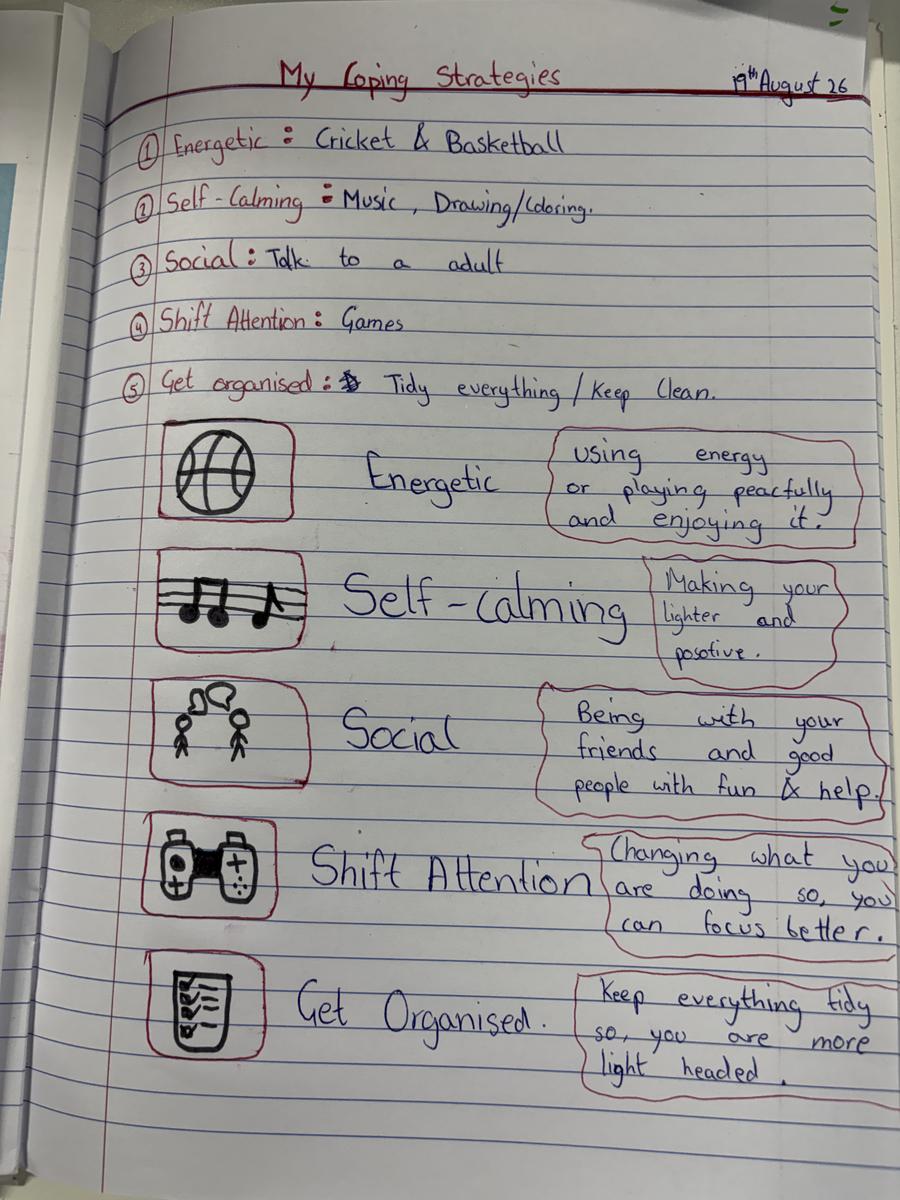 My Coping Strategies 19th August 26
① Energetic : Cricket & Basketball
② Self-Calming : Music, Drawing/Coloring.
③ Social : Talk to a adult
④ Shift Attention : Games
⑤ Get organised : Tidy everything / Keep Clean.
Energetic
using energy
or playing peacfully
and enjoying it.
Self-calming
Making your
lighter and
posotive.
Social
Being with your
friends and good
people with fun & help.
Shift Attention
Changing what you
are doing so, you
can focus better.
Get Organised.
Keep everything tidy
so, you are more
light headed.